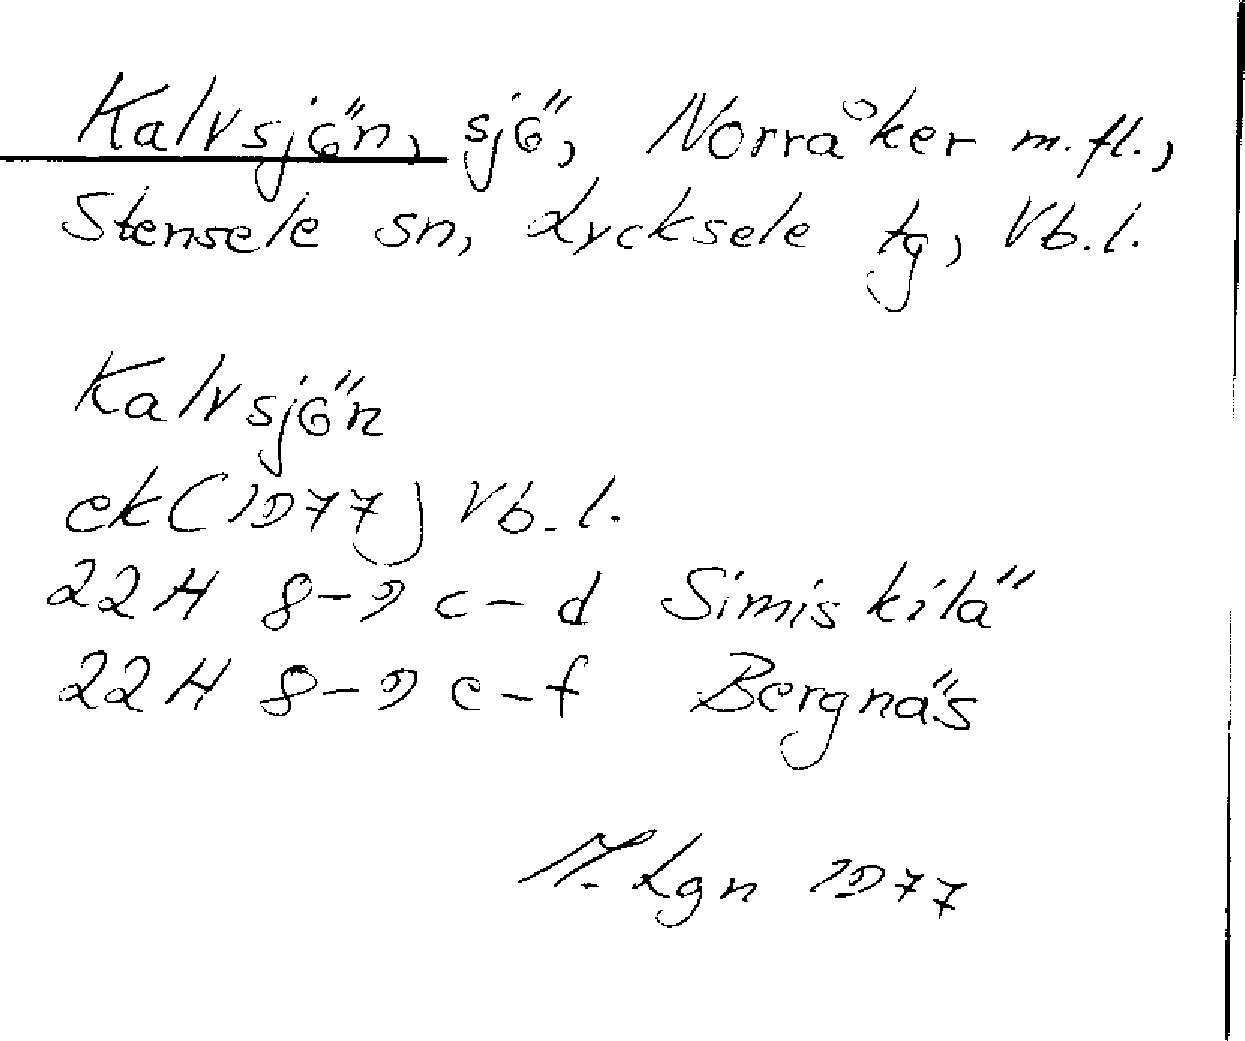 Kalvsjön, sjö, Norråker m.fl.,
Stensele sn, Lycksele tg, Vb.l.
Kalvsjön
ek(1977) Vb.l.
22H 8-9 c-d Simiskilä
22H 8-9 e-f Bergnäs
M. Lgn 1977